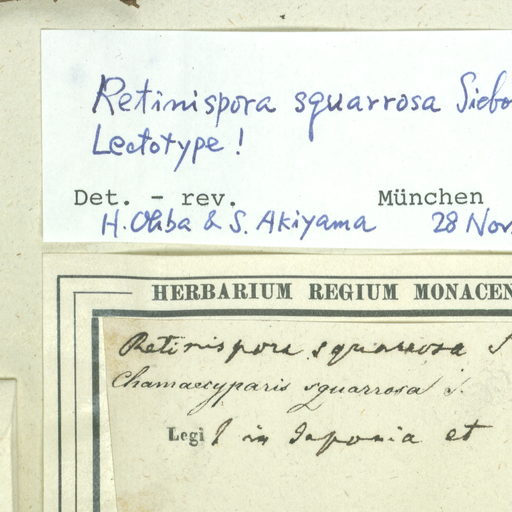 Retinispora squarrosa Siebo
Lectotype !
Det. - rev. München
H. Ohba & S. Akiyama 28 Nov
HERBARIUM REGIUM MONACEN
Retinispora squarrosa S
Chamaecyparis squarrosa S.
Legi in Japonia et